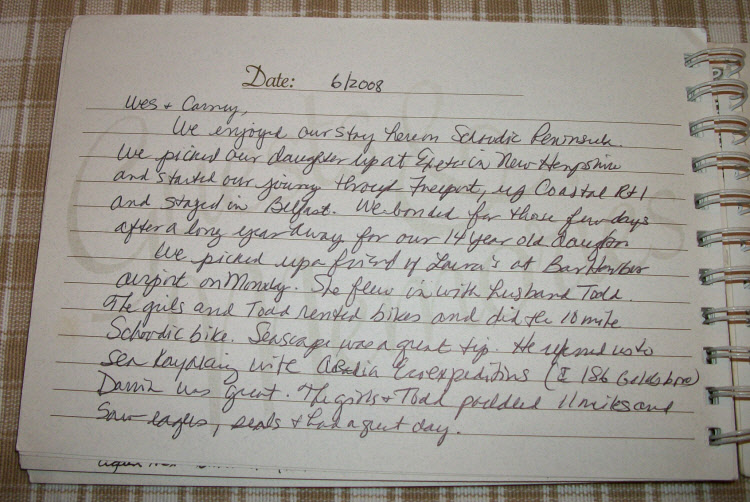 Date: 6/2008
Wes + Carney,
We enjoyed our stay here on Schoodic Peninsula.
We picked our daughter up at Exeter in New Hampshire
and started our journey through Freeport, up Coastal Rt 1
and stayed in Belfast. We bonded for those few days
after a long year away for our 14 year old daughter
We picked up a friend of Laura's at Bar Harbor
airport on Monday. She flew in with husband Todd.
The girls and Todd rented bikes and did the 10 mile
Schoodic bike. Seascape was a great tip. He referred us to
sea kayaking with Acadia (186 Goldsboro)
Darrin was great. The girls + Todd paddled 11 miles and
saw eagles, seals + had a great day.